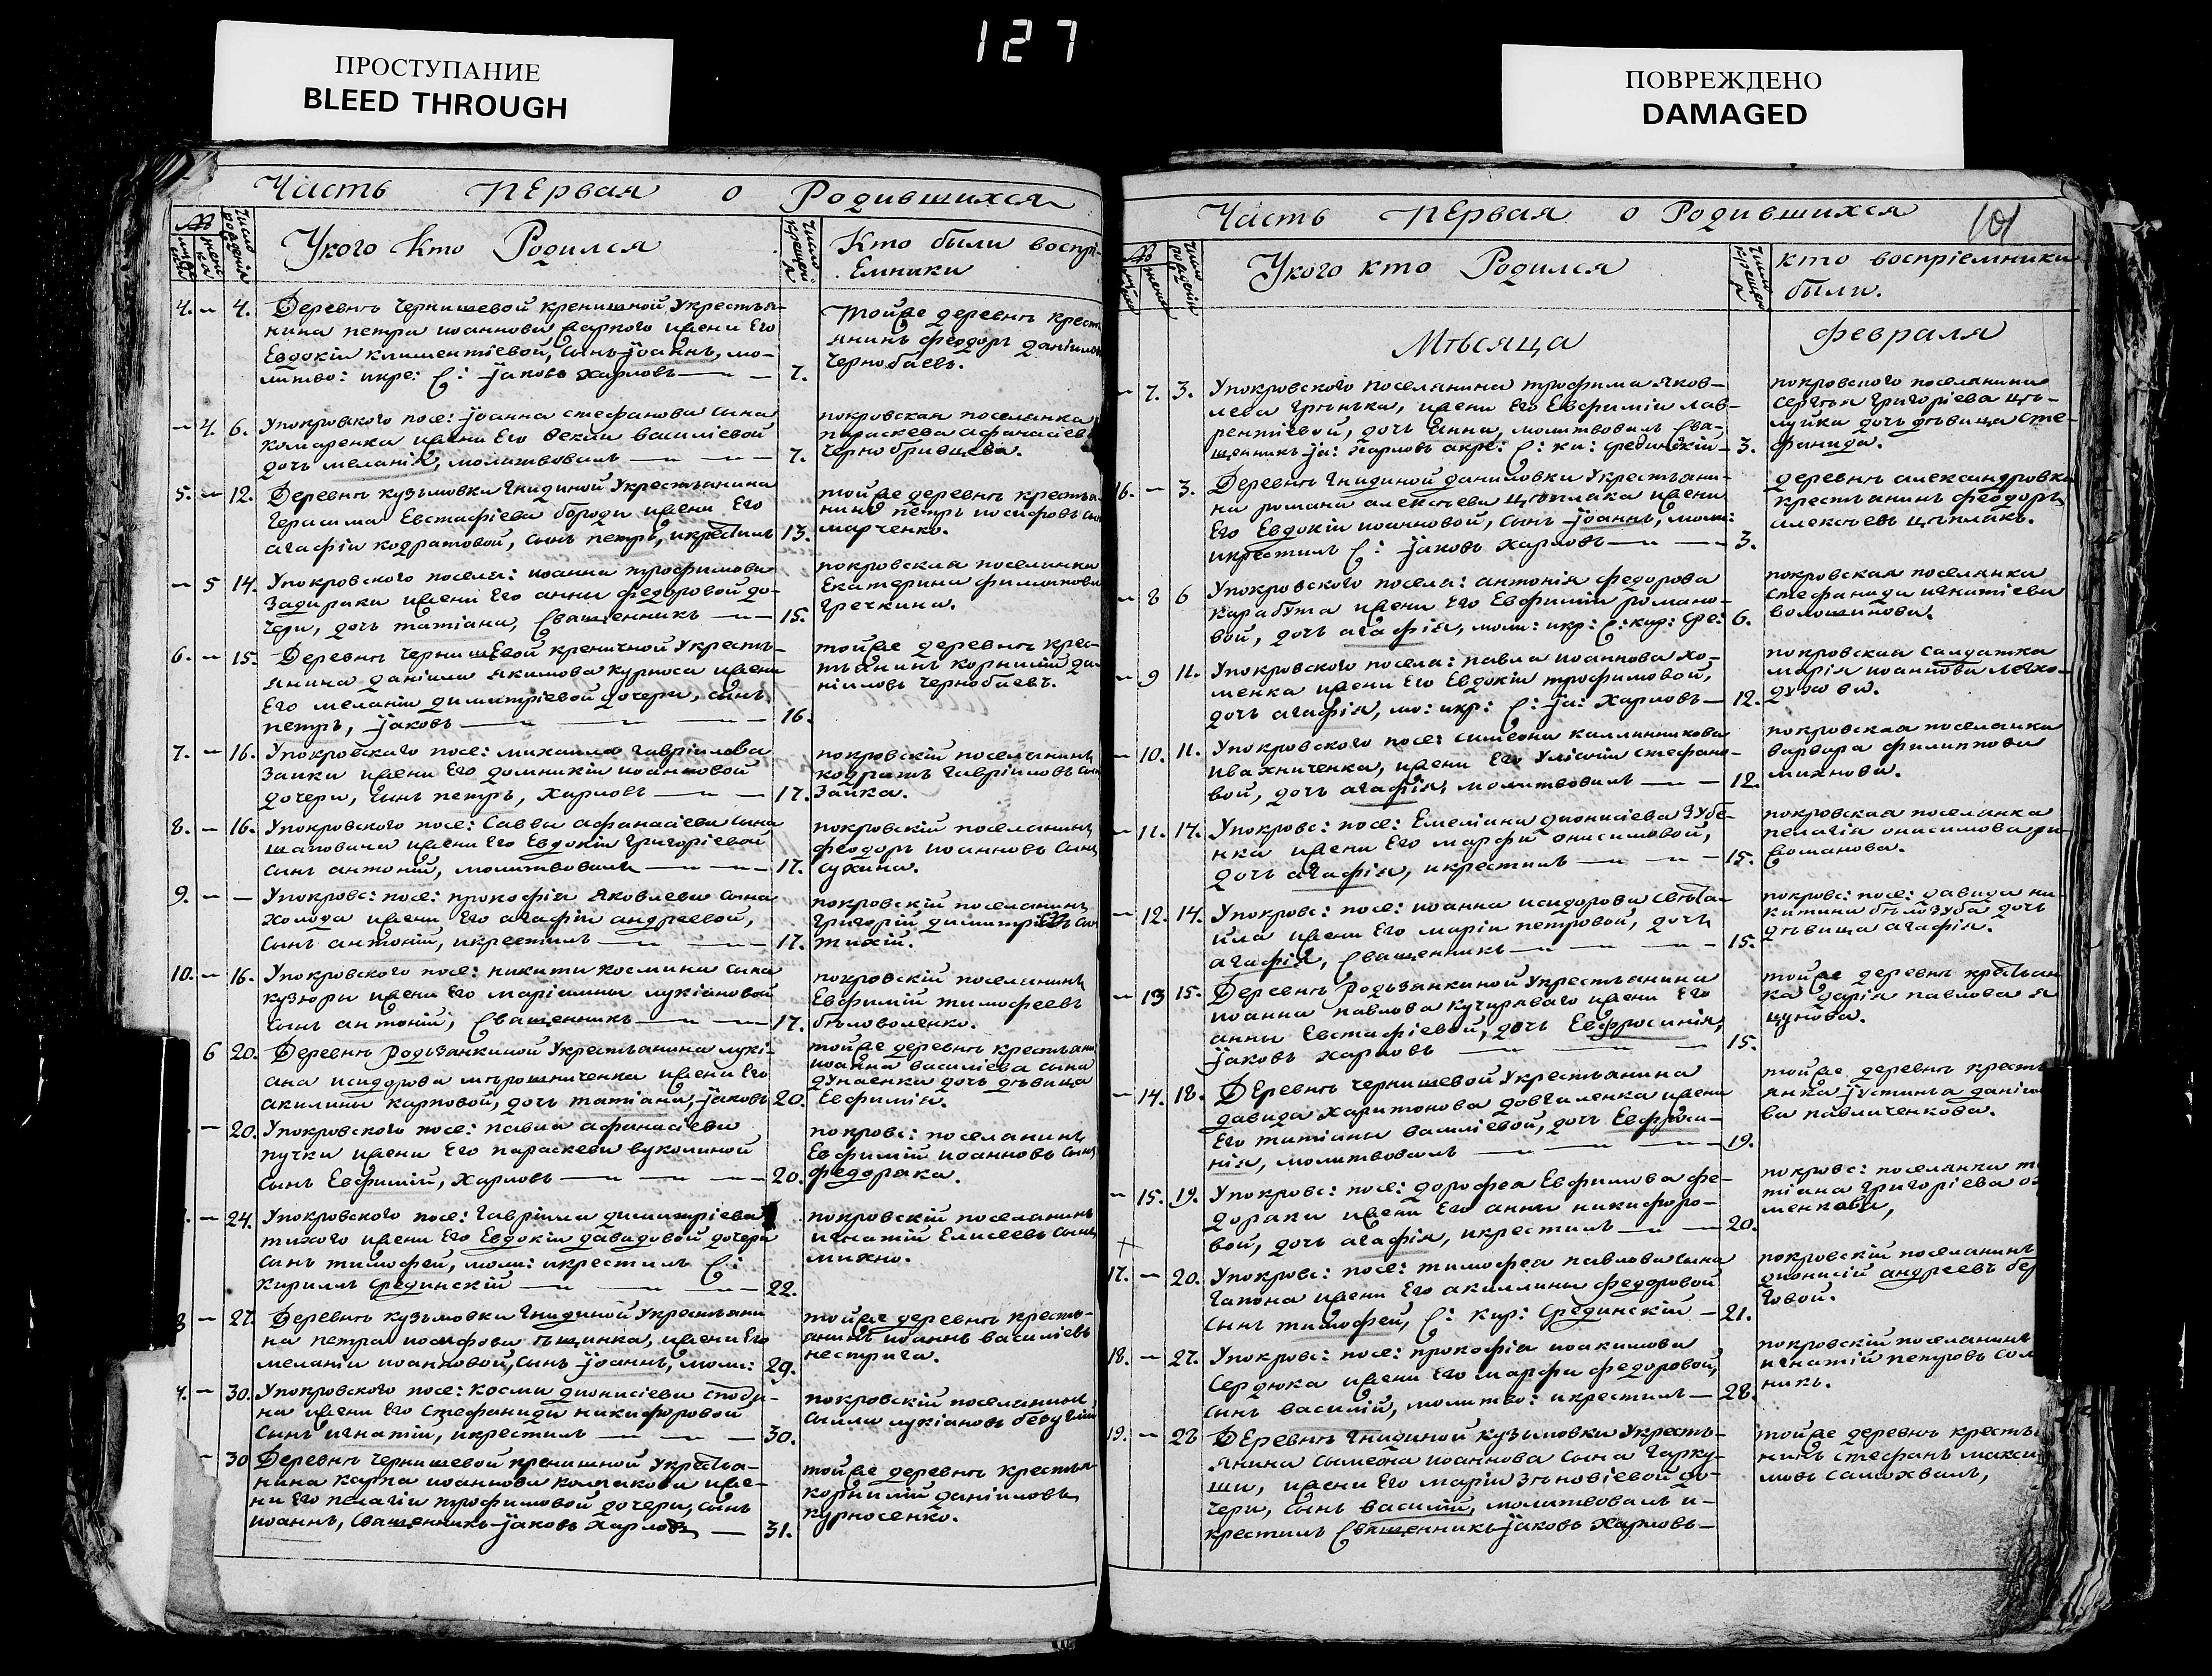 127
ПРОСТУПАНИЕ
BLEED THROUGH
ПОВРЕЖДЕНО
DAMAGED
Часть первая о Родившихся
У кого кто Родился
Кто были воспрі-
Емники
4. – 4. Деревнѣ Чернишевой кренишной Укрестья-
нина петра иоаннова имени Его
Евдокіи климентіевой, сынъ іоаннъ, мо-
литво: икре: С: іаковъ Харловъ 7.
Тойже деревнѣ крест
янинъ феодоръ даніилов
Чернобаевъ.
– 4. 6. Упокровского посе: іоанна стефанова сына
Комаренка Его Фекли василіевой
дочь меланія, молитвовалъ 7.
покровская поселянка
параскева афанасіев
Чернобривцева.
5. – 12. Деревнѣ кузьмовки Гнидиной Укрестьянина
Герасима Евстафіева бороди Его
агафіи кодратовой, сынъ петръ, икрестилъ 13.
тойже деревнѣ крестья
нинъ петръ иосифовъ
марченко.
– 5 14. Упокровского поселя: иоанна трофимова
Задираки Его анни федоровой до-
чери, дочь татіана, Священникъ 15.
покровская поселянка
Екатерина филиппова
Гречкина.
6. – 15. Деревнѣ Чернишевой креничной Укресть-
янина даніила якимова Курноса
Его меланіи димитріевой дочери, сынъ
петръ, іаковъ 16.
тойже деревнѣ крес-
тьянинъ корнилій да-
ніиловъ Чернобаевъ.
7. – 16. Упокровскаго посе: михаила Гавріилова
Заики Его домникіи иоанновой
дочери, сынъ петръ, Харловъ 17.
покровскій поселянинъ
кодратъ Гавріиловъ сын
Заика.
8. – 16. Упокровского посе: Саввы афанасіева сына
шаповала Его Евдокіи Григоріевой
сынъ антоній, молитвовалъ 17.
покровскій поселянинъ
феодоръ иоанновъ сынъ
Сухина.
9. – – Упокровс: посе: прокофія Яковлева сына
Холода Его агафіи андреевой,
сынъ антоній, икрестилъ 17.
покровскій поселянинъ
Григорій
тихій.
10. – 16. Упокровского посе: никити космина сына
кузюри Его маріамны лукіановой
сынъ антоній, Священникъ 17.
покровскій поселянинъ
Евфимій тимофеевъ
бѣловоленко.
6 20. Деревнѣ Родзянкиной Укрестьянина лукі-
ана исидорова мѣрошниченка Его
акилины карповой, дочь татіана, іаковъ 20.
тойже деревнѣ крестьяни
иоанна василіева сына
дунаенка дочь дѣвица
Евфимія.
– 20. Упокровского посе: павла афанасіева
пучки Его параскеви вуколиной
сынъ Евфимій, Харловъ 20.
покровс: поселянинъ
Евфимій иоанновъ сынъ
федоряка.
– 24. Упокровского посе: Гавріила димитріева
тихого Его Евдокіи давидовой дочери
сынъ тимофей, моли: икрестилъ С:
Кирилъ Срединскій 22.
покровскій поселянинъ
игнатій Елисеевъ сынъ
михно.
3 – 27. Деревнѣ кузьмовки Гнидиной Укрестьяни
на петра иосифова Его
меланіи иоанновой, сынъ іоаннъ, моли: 29.
тойже деревнѣ кресть-
янинъ иоаннъ василіевъ
нестрига.
4. – 30. Упокровского посе: Косми дионисіева
на Его Стефаниди никифоровой
сынъ игнатій, икрестилъ 30.
покровскій поселянинъ
лукіановъ
– 30 Деревнѣ Чернишевой кренишной Укрестья-
нина карпа иоаннова колпакова
Его пелагіи трофимовой дочери, сынъ
иоаннъ, Священникъ іаковъ Харловъ 31.
тойже деревнѣ крестья
корнилій даніиловъ
курносенко.
Часть первая о Родившихся
101
У кого кто Родился
кто воспріемники
были.
Мѣсяца февраля
– 7. 3. Упокровского поселянина трофима Яков-
лева Гринька, Его Евфиміи лав-
рентіевой, дочь анна, молитвовалъ Свя-
щенникъ іа: Харловъ акре: С: ки: срединскій 3.
покровского поселянина
Сергѣя Григоріева
дочь дѣвица Сте-
фанида.
16. – 3. Деревнѣ Гнидиной даниловки Укрестьяни-
на романа алексѣева цѣпляка
Его Евдокіи иоанновой, сынъ іоаннъ, моли:
икрестилъ С: іаковъ Харловъ 3.
деревнѣ александровки
крестьянинъ феодоръ
алексѣевъ цѣплякъ.
– 8 6 Упокровского посела: антонія федорова
Карабута Его Евфиміи романо-
вой, дочь агафія, моли: икр: С: кир: сре: 6.
покровская поселянка
Стефанида игнатіева
волошинова.
– 9 11. Упокровского посела: павла иоаннова хо-
менка Его Евдокіи трофимовой,
дочь агафія, мо: икр: С: іа: Харловъ 12.
покровская салдатка
марія иоаннова

– 10. 11. Упокровского посе: симеона каллиникова
ивахниченка, Его Уліяніи стефано-
вой, дочь агафія, молитвовалъ 12.
покровская поселянка
варвара филиппова
михнова.
– 11. 14. Упокровс: посе: Емеліана дионисіева Зубе-
нка Его марфи онисимовой,
дочь агафія, икрестилъ 15.
покровская поселянка
пелагія онисимова

– 12. 14. Упокровс: посе: иоанна исидорова
Его маріи петровой, дочь
агафія, Священникъ 15.
покровс: посе: давида ни-
китина бѣлозуба дочь
дѣвица агафія.
– 13 15. Деревнѣ Родзянкиной Укрестьянина
иоанна павлова Кучиряваго Его
анни Евстафіевой, дочь Евфросинія,
іаковъ Харловъ 15.
тойже деревнѣ крестьян
ка дарія павлова я
цунова.
– 14. 18. Деревнѣ Чернишевой Укрестьянина
давида Харитонова довгаленка
Его татіаны василіевой, дочь Евфроси-
нія, молитвовалъ 19.
тойже деревнѣ крестья
янка іустина даніило
ва павличенкова.
– 15. 19. Упокровс: посе: дорофея Евфимова фе-
доряки Его анни никифоро-
вой, дочь агафія, икрестилъ 20.
покровс: поселянка т
тіана Григоріева
менкова,
17. – 20. Упокровс: посе: тимофея павлова сына
Гапона Его акилины федоровой
сынъ тимофей, С: Кир: Срединскій 21.
покровскій поселянинъ
дионисій андреевъ бер
говой.
18. – 27. Упокровс: посе: прокофія иоакимова
Сердюка Его марфи федоровой,
сынъ василій, молитво: икрестилъ 28.
покровскій поселянинъ
игнатій петровъ

19. – 28 Деревнѣ Гнидиной кузьмовки Укресть-
янина Симеона иоаннова сына Гарку-
ши, Его маріи Зѣновіевой до-
чери, сынъ василій, молитвовалъ и-
крестилъ Священникъ іаковъ Харловъ
тойже деревнѣ крестья
нинъ стефанъ макси
мовъ Самохвалъ,